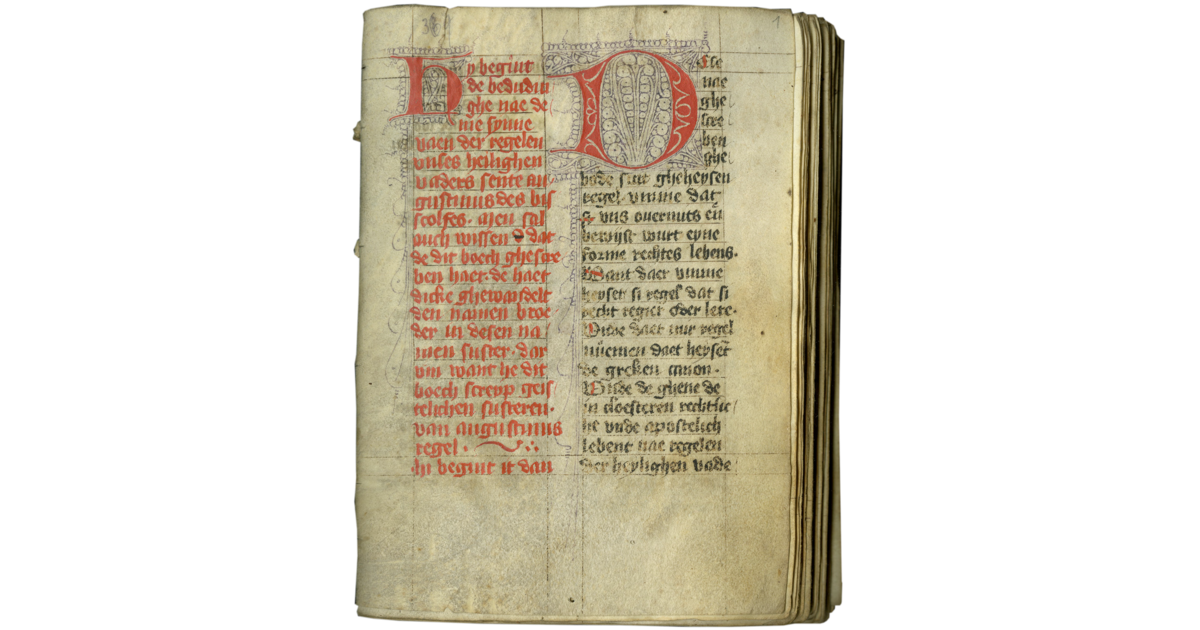 Hy begint
de bedudin
ghe nae de
me synne
vaen der regelen
unses heilighen
vaders sente au
gustinus des bis
scolfes. men sal
ouch wissen dat
de dit boech ghescre
ben haet. de haet
dicke ghewandelt
den namen broe
der in desen na
men suster. dar
um want he dit
boech screyp geis
telichen susteren.
van augustinus
regel.
hi begint it dan
1
Dese
nae
ghe
scre
ben
ghe
bode sint gheheysen
regel. vmme dat
vns ouermits en
bewijst wurt eyne
forme rechtes lebens.
Want daer vmme
heyset si regel dat si
recht regiert oder lere.
Vnde daet wir regel
nuemen daet heyset
de greken canon.
Vnde de ghene de
in cloesteren rechtlic
he vnde apostelich
lebent nae regelen
der heylighen vade